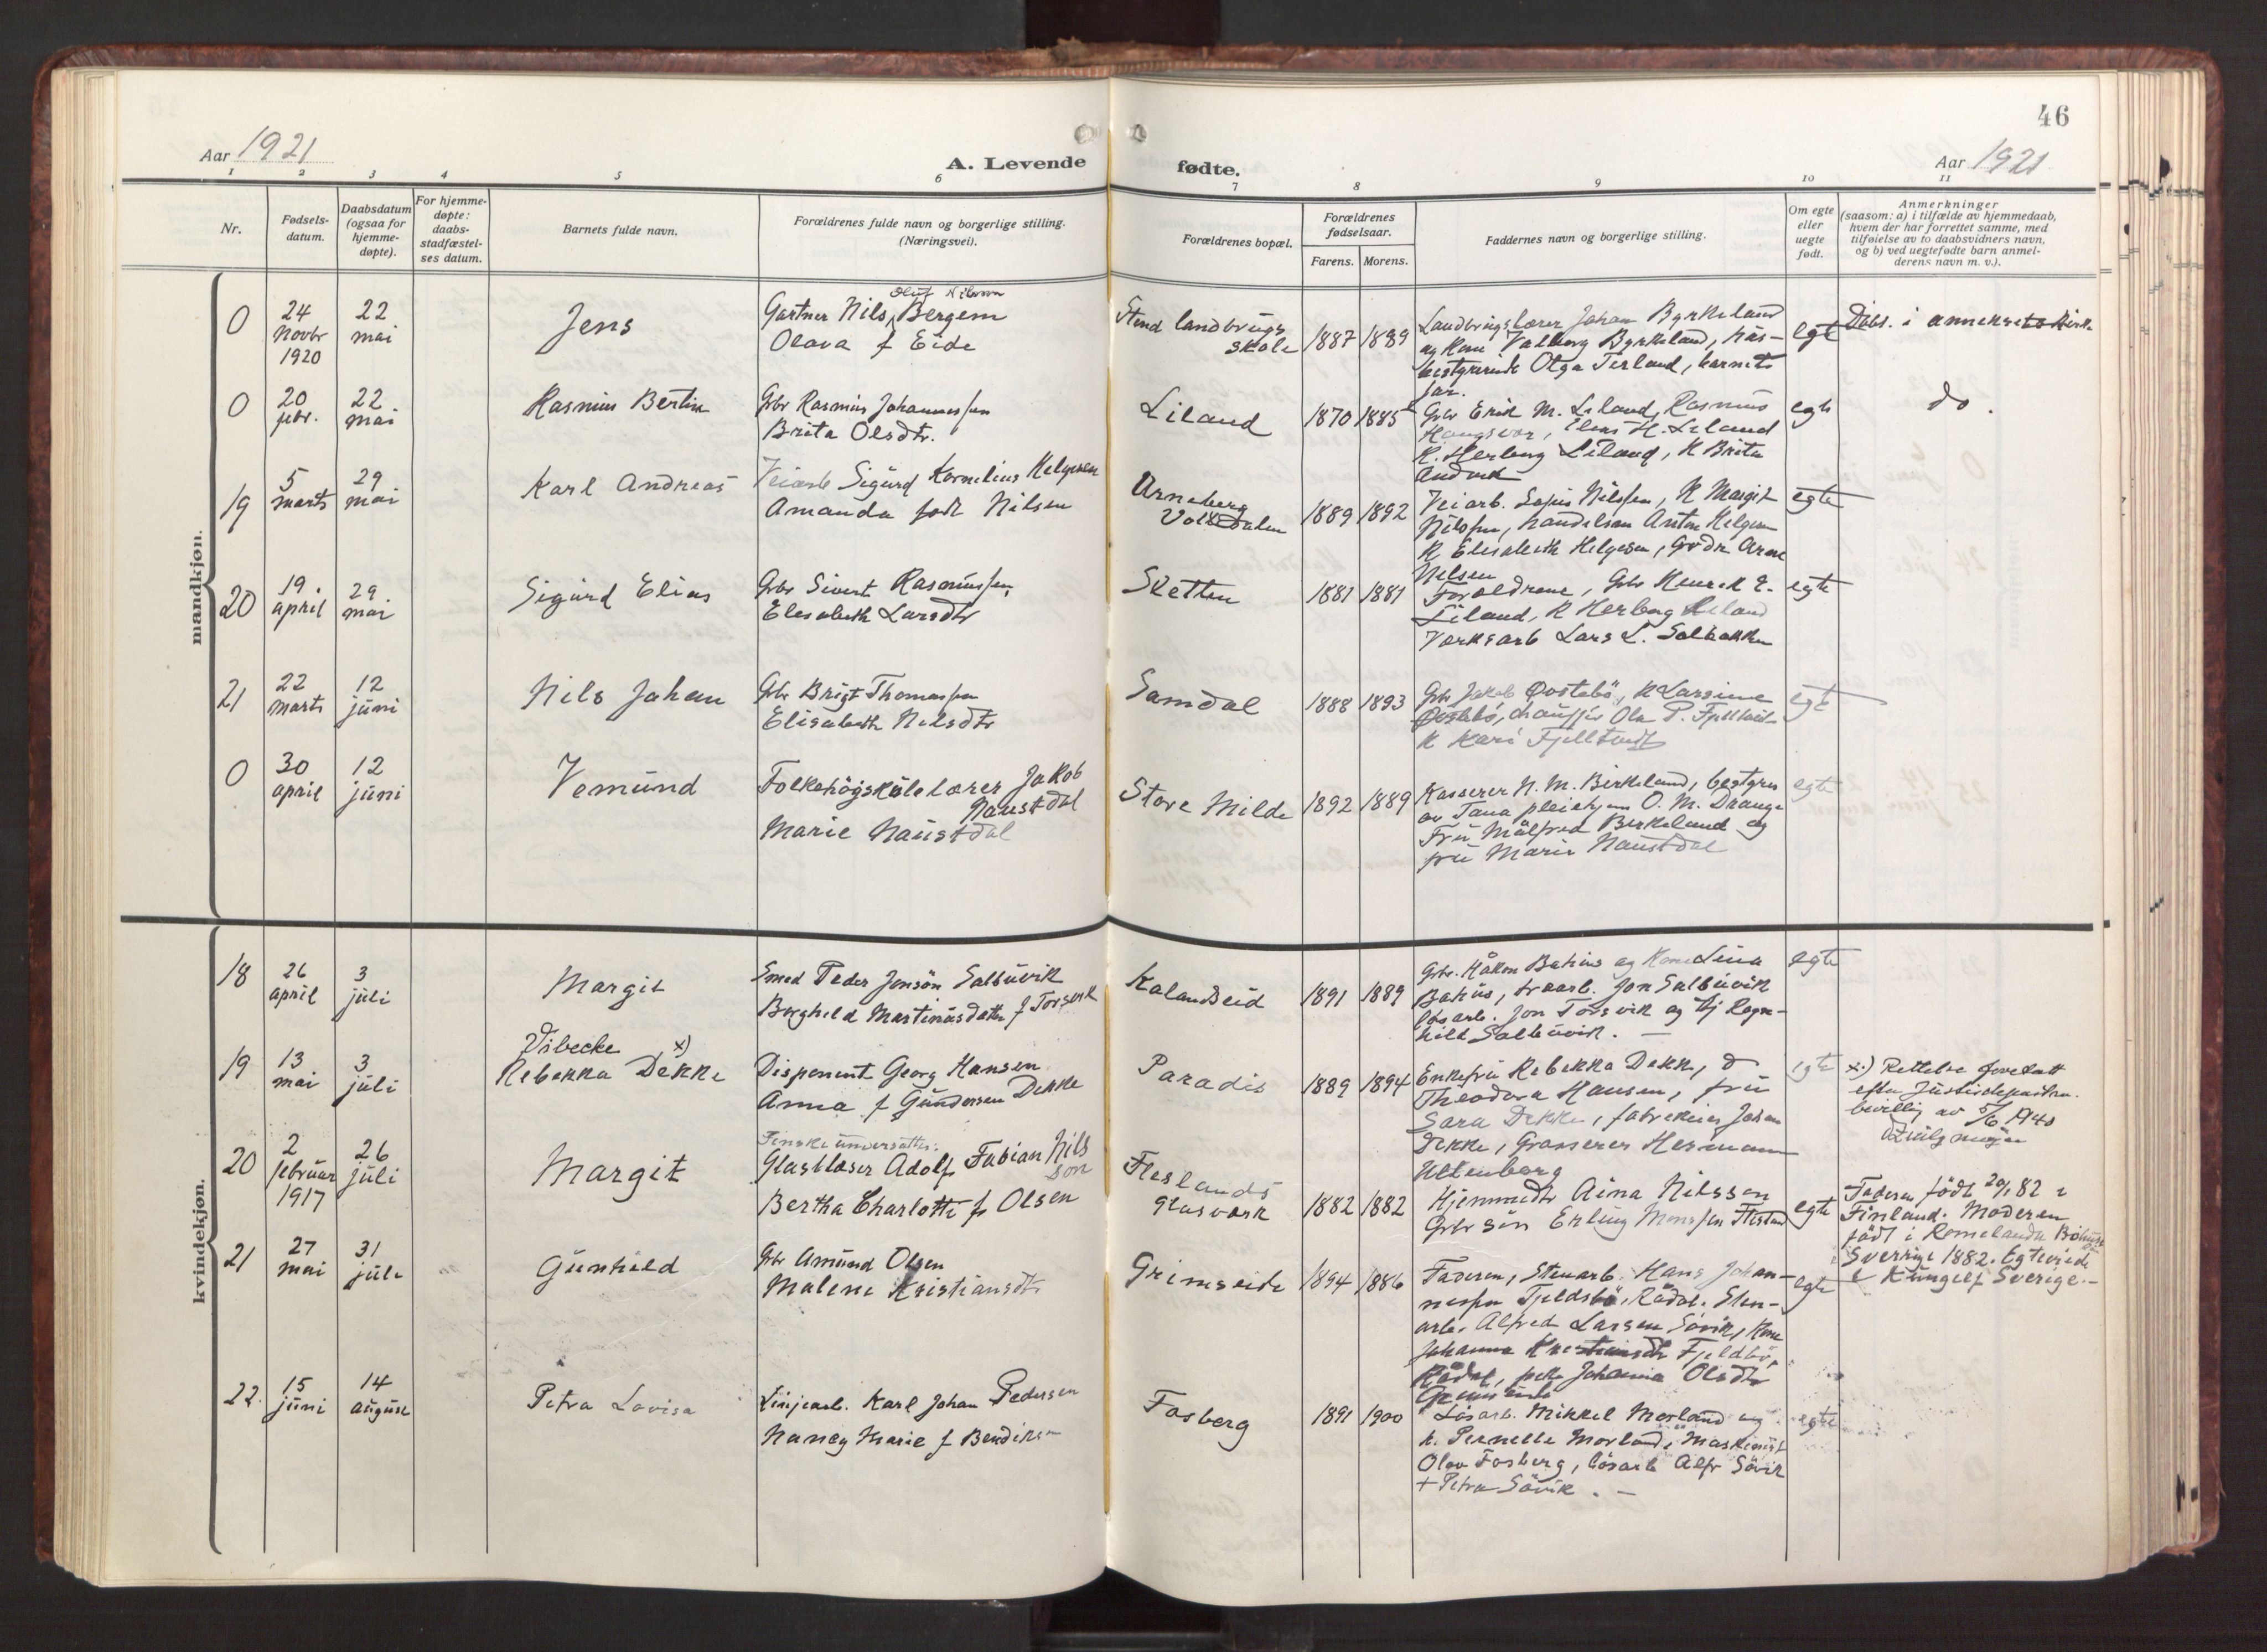 46
Aar 1921
A. Levende
fødte.
Aar 1921
1 2 3 4 5 6 7 8 9 10 11
Nr.
Fødsels-
datum.
Daabsdatum
(ogsaa for
hjemme-
døpte).
For hjemme-
døpte:
daabs-
stadfæstel-
ses datum.
Barnets fulde navn.
Forældrenes fulde navn og borgerlige stilling.
(Næringsvei).
Forældrenes bopæl.
Forældrenes
fødselsaar.
Farens. Morens.
Faddernes navn og borgerlige stilling.
Om egte
eller
uegte
født.
Anmerkninger
(saasom: a) i tilfælde av hjemmedaab,
hvem der har forrettet samme, med
tilføielse av to daabsvidners navn,
og b) ved uegtefødte barn anmel-
derens navn m. v.).
mandkjøn.
0
24
Novbr
1920
22
mai
Jens
Oluf Nilsson
Gartner Nils Bergem
Olava f Eide
Stend landbrugs
skole
1887 1889
Landbrugslærer Johan Byrkeland
og Kone Valborg Byrkeland, hus-
bestyrerinde Olga Terland, barnets
far.
egte
Døbt. i annekset
0
20
febr.
22
mai
Rasmus Bertin
Gbr Rasmus Johannessen
Brita Olsdtr.
Liland
1870 1885
Gbr Erik M. Liland, Rasmus
Haugsvær, Elias H. Liland
K. Herborg Liland, K Brita
egte
do.
19
5
marts
29
mai
Karl Andreas
Veiarb Sigurd Kornelius Helgesen
Amanda født Nilsen
Arneberg
1889 1892
Veiarb. Nilssen, K Margit
Nilssen, handelsm Anton Helgesen
K Elisabeth Helgesen, Arne
Nilsen
egte
20
19
april
29
mai
Sigurd Elias
Gbr Sivert Rasmussen,
Elisabeth Larsdtr
Sletten
1881 1881
Forældrene, Gbr Henrik E.
Liland, K Herborg Liland
Værksarb Lars L. Solbakken
egte
21
22
marts
12
juni
Nils Johan
Gbr Brigt Thomassen
Elisabeth Nilsdtr
Samdal
1888 1893
Gbr Jakob Øvstebö, K Larsine
Øvstebö, chauffør Ola P. Fjelltveit
K Kari Fjelltveit
egte
0
30
april
12
juni
Vemund
Folkehögskulelærer Jakob
Naustdal
Marie Naustdal
Store Milde
1892 1889
Kasserer N. M. Birkeland, bestyrer
av Fana pleiehjem O. M. Drange
Fru Målfred Birkeland og
fru Marie Naustdal
egte
kvindekjøn.
18
26
april
3
juli
Margit
Smed Peder Jonsön Salbuvik
Borghild Martinusdatter f Torsvik
Kalandseid
1891 1889
Gbr. Håkon Bahus og Kone Lina
Bahus, Jon Salbuvik
Jon Torsvik og pj Ragn-
hild Salbuvik. —
egte
19
13
mai
3
juli
Vibecke x)
Rebekka Dekke
Disponent Georg Hansen
Anna f Gundersen Dekke
Paradis
1889 1894
Enkefru Rebekka Dekke,
Theodora Hansen, fru
Sara Dekke, fabrikeier Johan
Dekke, Grosserer Hermann
egte
x.) Rettelse foretatt
efter Justisdepartem.
bevillig av 5/6 1940
20
2
februar
1917
26
juli
Margit
Finske undersåtter:
Glasblåser Adolf Fabian Nils
son
Bertha Charlotte f Olsen
Fleslands
Glasværk
1882 1882
Hjemmedtr Aina Nilsson
Gbr sön Erling Monssen Flesland
egte
Faderen født 20/1 82 i
Finland. Moderen
født i Romelanda Bohus
Sverrige 1882. Egteviede
i Kungelf Sverige. –
21
27
mai
31
juli
Gunhild
Gbr Amund Olsen
Malene Kristiansdtr
Grimseide
1894 1886
Faderen, Stenarb. Hans Johan-
nessen Fjeldsbö, Rådal. Sten-
arb. Alfred Larsen Sövik, Kone
Johanna Kristiansdtr Fjeldsbö,
Rådal, pike Johanna Olsdtr
egte
22.
15
juni
14
august
Petra Lovisa
Linjearb. Karl Johan Pedersen
Nancy Marie f Bendiksen
Fosberg
1891 1900
Løsarb. Mikkel Morland og
h. Pernelle Morland, Maskinist
Olav Fosberg, lösarb Alfr Sövik
+ Petra Sövik. —
egte